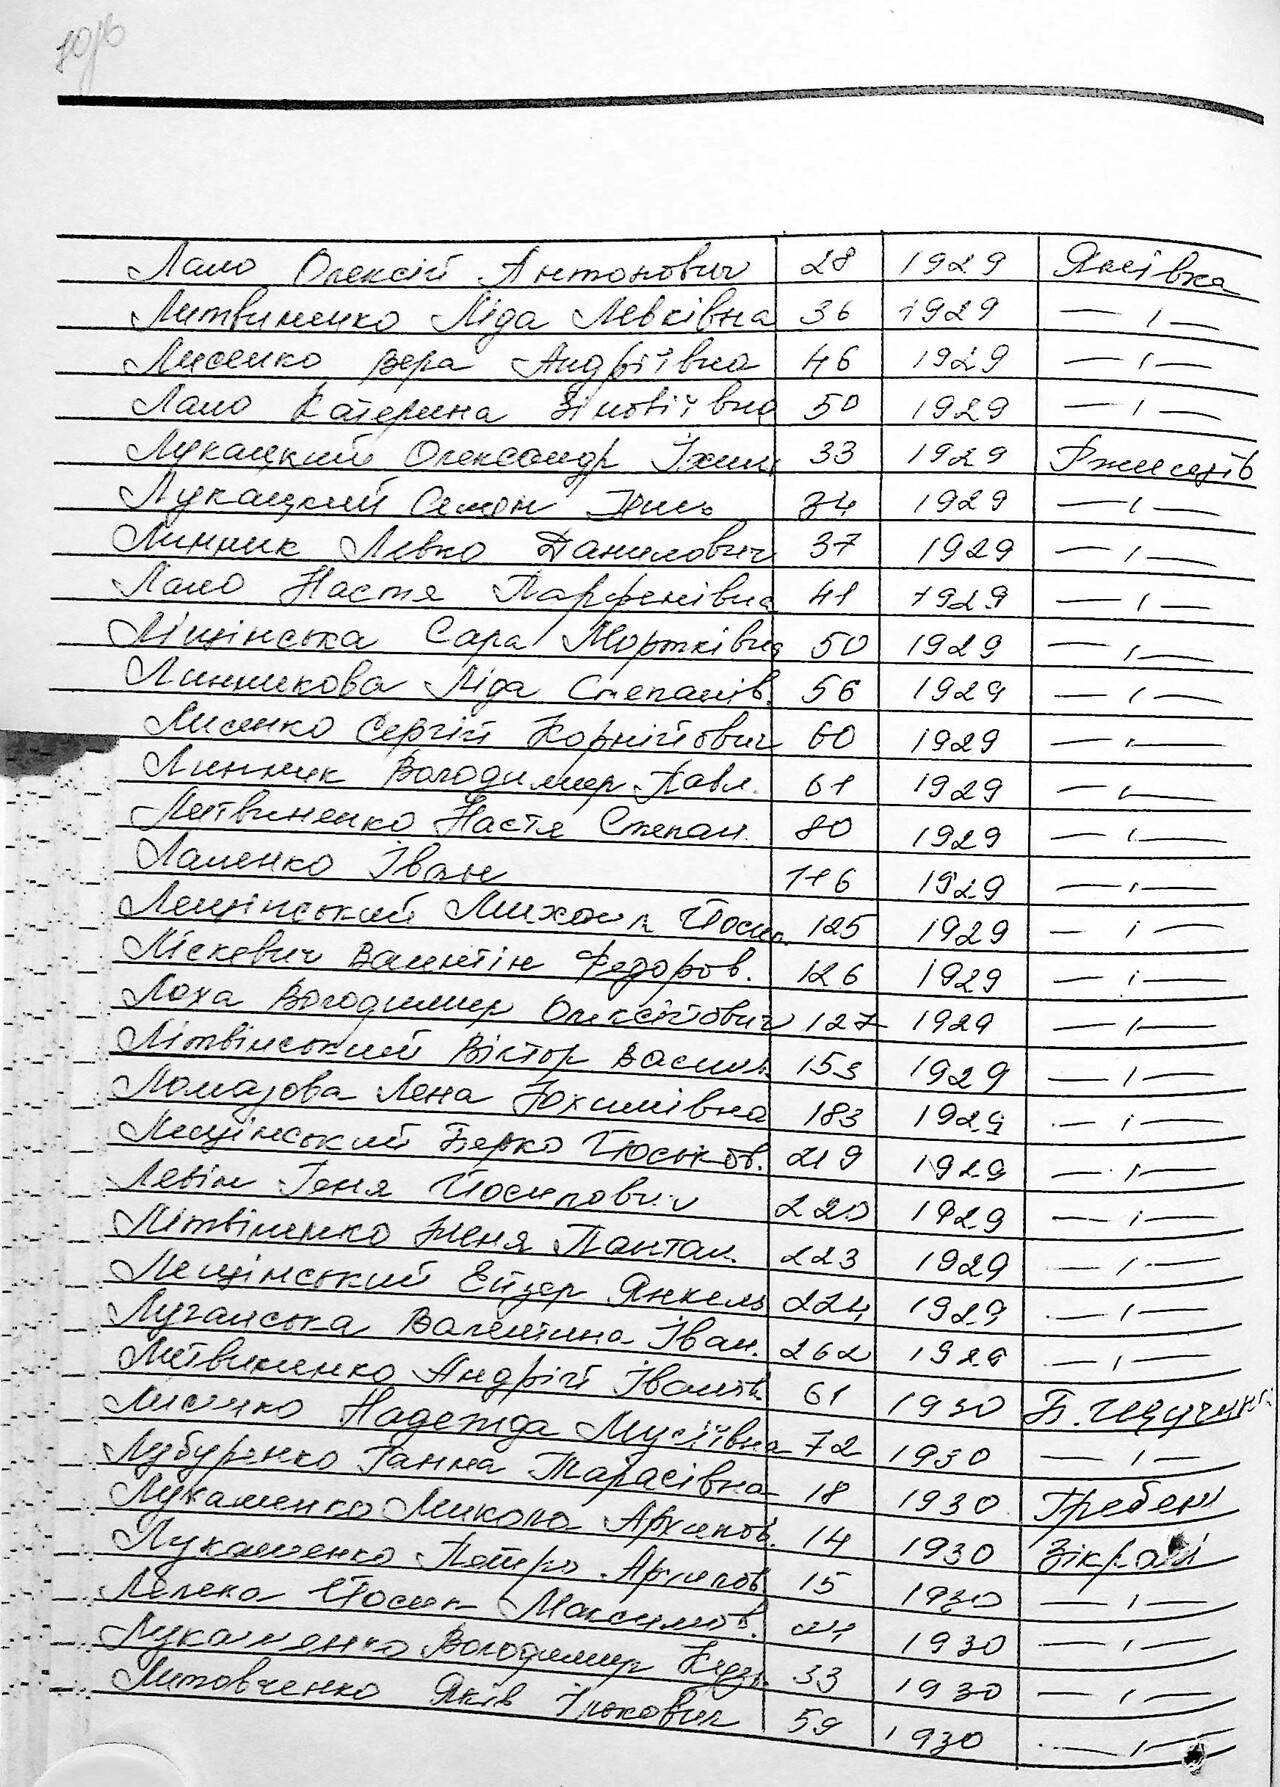 Лало Олексій Антонович 28 1929 Яківка
Литвиненко Ліда Левківна 36 1929 — ı —
Лисенко Вера Андріївна 46 1929 — ı —
Лало Катерина Зіновіївна 50 1929 — ı —
Лукацкий Олександр 33 1929 Ржищів
Лукацкий Семон 34 1929 — ı —
Линник Левко Данилович 37 1929 — ı —
Лало Настя Парфенівна 41 1929 — ı —
Ліщінська Сара Мортківна 50 1929 — ı —
Линникова Ліда Степанів. 56 1929 — ı —
Лисенко Сергій Корнійович 60 1929 — ı —
Линник Володимир Павл. 61 1929 — ı —
Литвиненко Настя Степан. 80 1929 — ı —
Лаленко Іван 116 1929 — ı —
Лещінський Михаил Йосип. 125 1929 — ı —
Ліскевич Валентін Федоров. 126 1929 — ı —
Лоха Володимир Олексійович 127 1929 — ı —
Літвінський Віктор Василь 153 1929 — ı —
Ломазова Лена Юхимівна 183 1929 — ı —
Лещінський Берко Йоськов. 219 1929 — ı —
Левін Геня Йосипович 220 1929 — ı —
Літвіненко Женя Пантал. 223 1929 — ı —
Лещінський Ейзер Янкель 224 1929 — ı —
Луганська Валентина Іван. 262 1929 — ı —
Литвиненко Андрій Іванов. 61 1930 Б. Щучинка
Лисенко Надежда Мусіївна 72 1930 — ı —
Лубуренко Ганна Тарасівна 18 1930 Гребені
Лукашенко Микола Архипов. 14 1930 Зікрачі
Лукашенко Петро Архипов 15 1930 — ı —
Лелека Йосип Максимов. 1930 — ı —
Лукашенко Володимир 33 1930 — ı —
Литовченко Яків Ількович 59 1930 — ı —